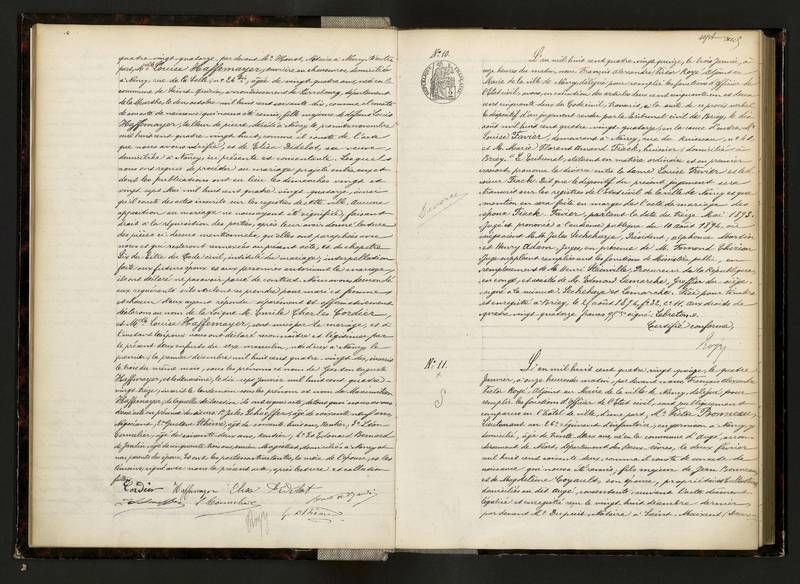 quatre-vingt-quatorze, par devant Me Houot, Notaire à Nancy, d'autre
part, Mlle Louise Haffemayer, ouvrière en chaussures, domiciliée
à Nancy, rue de la Salle, âgée de vingt quatre ans, née en la
commune de arrondissement de département
de la Meurthe, le deux octobre mil huit cent soixante dix, comme il conste
de son acte de naissance qui nous a été remis, fille majeure de défunt Louis
Haffemayer, tailleur de pierre, décédé à Nancy le novembre
mil huit cent quatre vingt huit, comme il conste de l'acte
que nous avons vérifié, et de Elisa Didelot, sa veuve,
domiciliée à Nancy, ici présente et consentante. Lesquels
nous ont requis de procéder au mariage projeté entre eux et
dont les publications ont eu lieu les dimanches vingt et
vingt sept Mai mil huit cent quatre vingt quatorze, ainsi
qu'il conste des actes inscrits sur les registres de cette ville. Aucune
opposition au mariage ne nous ayant été signifiée, faisant
droit à la réquisition des parties, après leur avoir donné lecture
des pièces ci-dessus mentionnées, qu'elles ont paraphées avec
nous et qui resteront annexées au présent acte, et du chapitre
six du titre du Code civil, intitulé du mariage; interpellation
faite aux futurs époux et aux personnes autorisant le mariage,
ils ont déclaré ne pas avoir passé de contrat. Nous avons demandé
aux requérants s'ils veulent se prendre pour mari et femme
et chacun d'eux ayant répondu séparément et affirmativement
déclarons au nom de la loi que M. Emile Charles Cordier
et Mlle Louise Haffemayer, sont unis par le mariage, et à
l'instant les époux nous ont déclaré reconnaître et légitimer par
le présent deux enfants du sexe masculin, nés d'eux à Nancy, le
premier, le premier décembre mil huit cent quatre vingt dix, inscrit
le trois du même mois, sous les prénoms et nom de Gaston Auguste
Haffemayer, et le deuxième, le dix sept janvier mil huit cent quatre
vingt treize, inscrit le lendemain sous les prénoms et nom de
Haffemayer, de laquelle déclaration ils ont requis acte, de tout quoi nous avons
dressé acte en présence des sieurs: 1° Jules Schaeffer, âgé de
négociant, 2° Gustave Thième, âgé de soixante huit ans, Rentier, 3° Léon
Connelier, âgé de soixante deux ans, Rentier; 4° Edouard Bernard
domiciliés à Nancy et
non parents des époux. Et ont, les parties contractantes, la mère de l'épouse, et les
témoins, signé avec nous le présent acte, après lecture et collation
faites.
Cordier Haffemayer Elisa Didelot
Connelier
G. Thième
N° 10.
Divorce
L'an mil huit cent quatre vingt quinze, le trois janvier, à
onze heures du matin, nous François Alexandre Victor Royé, Adjoint au
Maire de la ville de Nancy, délégué pour remplir les fonctions d'officier de
l'état civil; nous, en exécution des articles deux cent cinquante un et deux
cent cinquante deux du Code civil, transcrit, à la suite de ce procès verbal
le dispositif d'un jugement rendu par le tribunal civil de Briey, le dix
août mil huit cent quatre vingt quatorze, en la cause d'entre, Me
Louise Favier, demeurant à Nancy, rue du Ruisseau, n° 21
et M. Marie Florent Amand Fisck, huissier, domicilié à
Briey. "Le Tribunal, statuant en matière ordinaire et en premier
ressort, prononce le divorce entre la dame Louise Favier et le
sieur Fisck. Dit que le dispositif du présent jugement sera
transcrit sur les registres de l'état civil de la ville de Nancy et que
mention en sera faite en marge de l'acte de mariage des
époux Fisck Favier, portant la date du treize Mai 1873.
Jugé et prononcé à l'audience publique du 10 août 1894, où
siégeaient MM. Président, Alphonse Martin
et Henry Adam, Juges, en présence de M. Fernand Thirion
Juge suppléant remplissant les fonctions de Ministère public, en
remplacement de M. Henri Procureur de la République,
en congé, et assistés de M. Edouard Lamarche, Greffier du siège.
Signé à la minute: et Lamarche. Visé pour timbre
et enregistré à Briey, le 21 août 1894, F° 32, C. 11, aux droits de
quatre vingt quatorze francs signé: Lebreton".
Certifié conforme,
Royé
N° 11.
L'an mil huit cent quatre vingt quinze, le quatre
Janvier, à onze heures du matin, par devant nous, François Alexandre
Victor Royé, Adjoint au Maire de la ville de Nancy, délégué pour
remplir les fonctions d'officier de l'état civil, sont publiquement
comparus en l'hôtel de ville, d'une part, Mr Victor Bonneau,
Lieutenant au 26e régiment d'infanterie, en garnison à Nancy, y
domicilié, âgé de trente deux ans, né en la commune d'Augé, arron-
dissement de Niort, département des Deux-Sèvres, le deux février
mil huit cent soixante deux, comme il conste de son acte de
naissance qui nous a été remis, fils majeur de Jean Bonneau
et de Magdeleine Goyault, son épouse, propriétaires
domiciliés au dit Augé, consentants, suivant l'acte dûment
légalisé et enregistré reçu le vingt huit décembre dernier
par devant Me Dupuis, Notaire à Saint-Maixent (Deux-